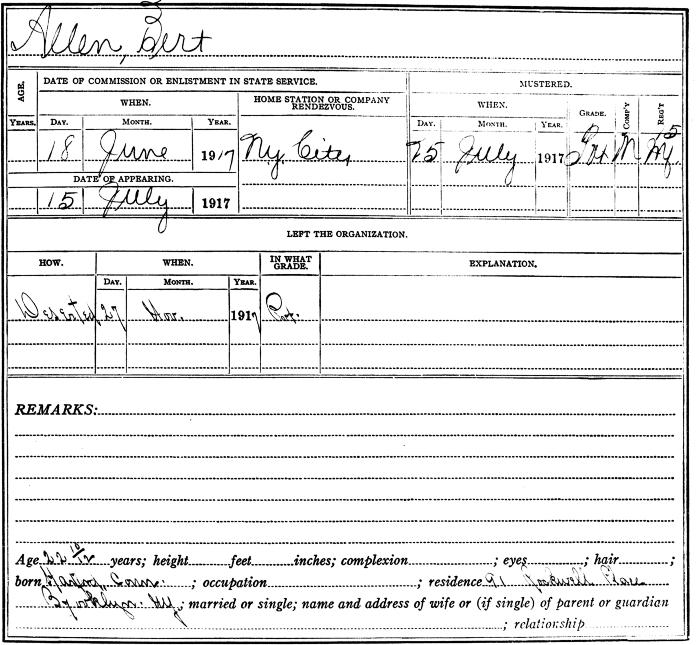 Allen, Bert
AGE. DATE OF COMMISSION OR ENLISTMENT IN STATE SERVICE. MUSTERED.
WHEN. HOME STATION OR COMPANY RENDEZVOUS. WHEN. GRADE. COMP'Y REG'T
YEARS. DAY. MONTH. YEAR. DAY. MONTH. YEAR.
18 June 1917 Ny. City, 25 July 1917 Pvt M 15 Ny.
DATE OF APPEARING.
15 July 1917
LEFT THE ORGANIZATION.
HOW. WHEN. IN WHAT GRADE. EXPLANATION.
DAY. MONTH. YEAR.
Deserted 27 Nov. 1917 Pvt.
REMARKS:
Age 22 10/12 years; height feet inches; complexion ; eyes ; hair ;
born Conn. ; occupation ; residence 91 Rockwell Place
Brooklyn. Ny. ; married or single; name and address of wife or (if single) of parent or guardian
; relationship